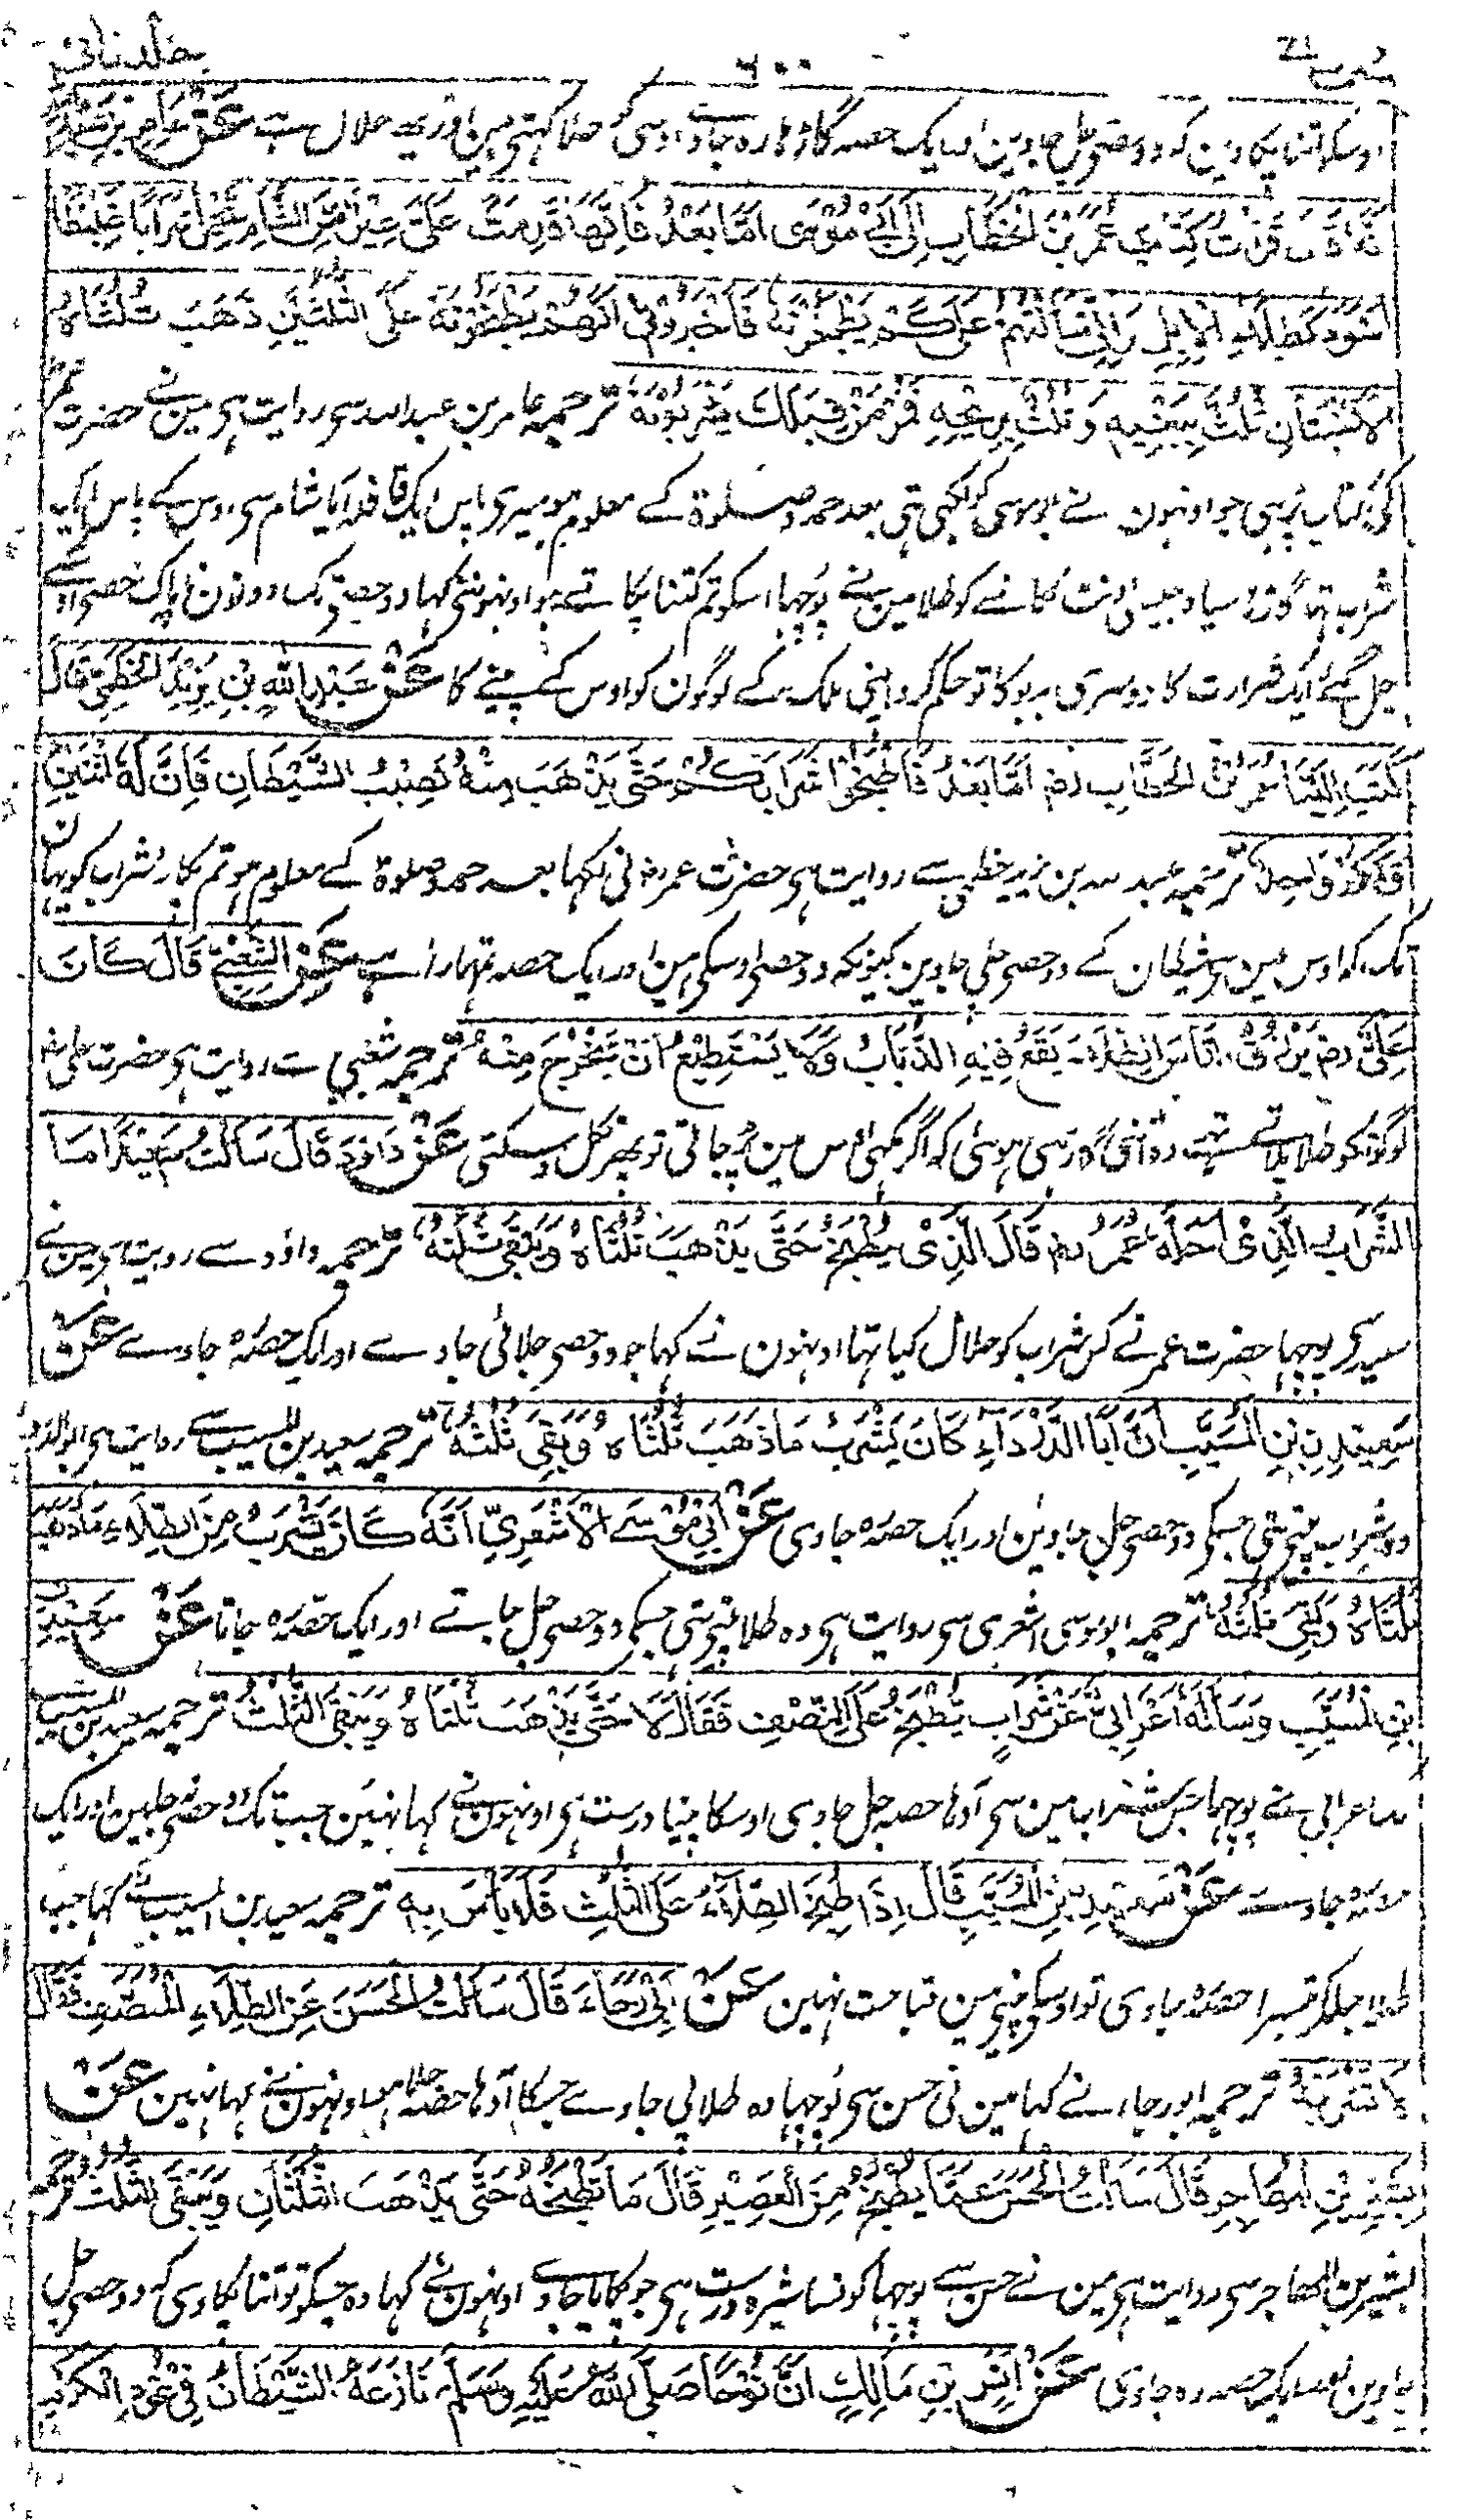 جلد ثانی ٦٠٠
اوسکو اتنا پکاوین کہ دو حصی جل جاوین اور ایک حصہ گاڑھا رہ جاوے اوسی کو طلا کہتی ہین اور یہ حلال ہے عَنْ عَامِرِ بْنِ عَبْدِ اللهِ
اَنَّهٗ قَالَ قَرَأْتُ كِتَابَ عُمَرَ بْنِ الْخَطَّابِ اِلٰى اَبِيْ مُوْسٰى اَمَّا بَعْدُ فَاِنَّهَا قَدِمَتْ عَلَيَّ عِيْرٌ مِّنَ الشَّامِ تَحْمِلُ شَرَابًا غَلِيْظًا
اَسْوَدَ كَطِلَاءِ الْاِبِلِ وَاِنِّيْ سَاَلْتُهُمْ عَلٰى كَمْ يَطْبُخُوْنَهٗ فَاَخْبَرُوْنِيْ اَنَّهُمْ يَطْبُخُوْنَهٗ عَلَى الثُّلُثَيْنِ ذَهَبَ ثُلُثَاهُ
الْاَخْبَثَانِ ثُلُثٌ بِبَغْيِهٖ وَثُلُثٌ بِرِيْحِهٖ فَمُرْ مَنْ قِبَلَكَ يَشْرَبُوْنَهٗ ترجمہ عامر بن عبداللہ سی روایت ہی مین نے حضرت عمر
کی کتاب پڑہی جو اونہون نے ابوموسی کو لکہی تہی بعد حمد و صلوۃ کے معلوم ہو میری پاس ایک قافلہ آیا شام سی اوس کے پاس ایک
شراب تہا گاڑہا سیاہ جیسی اونٹ لگانے کو طلا مین نے پوچہا اسکو تم کتنا پکاتے ہو اونہونے کہا دو حصی تک دونون ناپاک حصی اوسکے
جل گئے ایک شرارت کا دوسری بدبو کا تو حکم کر اپنی ملک کے لوگون کو اوس کے پینے کا عَنْ عَبْدِ اللهِ بْنِ يَزِيْدَ الْخَطْمِيِّ قَالَ
كَتَبَ اِلَيْنَا عُمَرُ بْنُ الْخَطَّابِ رضـ اَمَّا بَعْدُ فَاطْبُخُوْا شَرَابَكُمْ حَتّٰى يَذْهَبَ مِنْهُ نَصِيْبُ الشَّيْطَانِ فَاِنَّ لَهٗ اثْنَيْنِ
وَلَكُمْ وَاحِدٌ ترجمہ عبد اللہ بن یزید خطمی سے روایت ہی حضرت عمر رضـ نی لکہا بعد حمد و صلوۃ کے معلوم ہو تم پکاؤ شراب کو یہان
تک کہ اوس مین سی شیطان کے دو حصی چلی جاوین کیونکہ دو حصی اوسکی ہین اور ایک حصہ تمہارا ہے عَنِ الشَّعْبِيِّ قَالَ كَانَ
عَلِيٌّ رضـ يَرْزُقُ النَّاسَ الطِّلَاءَ يَقَعُ فِيْهِ الذُّبَابُ وَلَا يَسْتَطِيْعُ اَنْ يَّخْرُجَ مِنْهُ ترجمہ شعبی سے روایت ہی حضرت علی رضـ
لوگونکو طلا پلاتے تہے وہ اتنی گاڑہی ہوتی کہ اگر مکہی اوس مین پڑ جاتی تو پہر نکل نہ سکتی عَنْ دَاوٗدَ قَالَ سَاَلْتُ سَعِيْدًا مَا
الشَّرَابُ الَّذِيْ اَحَلَّهٗ عُمَرُ رضـ قَالَ الَّذِيْ يُطْبَخُ حَتّٰى يَذْهَبَ ثُلُثَاهُ وَيَبْقٰى ثُلُثُهٗ ترجمہ داؤد سے روایت ہی مین نے
سعید سی پوچہا حضرت عمر نے کس شراب کو حلال کیا تہا اونہون نے کہا جو دو حصی جلائی جاوے اور ایک حصہ رہ جاوے عَنْ
سَعِيْدِ بْنِ الْمُسَيَّبِ اَنَّ اَبَا الدَّرْدَاءِ كَانَ يَشْرَبُ مَا ذَهَبَ ثُلُثَاهُ وَبَقِيَ ثُلُثُهٗ ترجمہ سعید بن المسیب سے روایت ہی ابوالدردا
وہ شراب پیتی تہی جسکی دو حصی جل جاوین اور ایک حصہ رہ جاوی عَنْ اَبِيْ مُوْسَى الْاَشْعَرِيِّ اَنَّهٗ كَانَ يَشْرَبُ مِنَ الطِّلَاءِ مَا ذَهَبَ
ثُلُثَاهُ وَبَقِيَ ثُلُثُهٗ ترجمہ ابوموسی اشعری سی روایت ہی وہ طلا پیتی تہی جسکی دو حصی جل جاتے اور ایک حصہ رہ جاتا عَنْ سَعِيْدِ
بْنِ الْمُسَيَّبِ وَسَاَلَهٗ اَعْرَابِيٌّ عَنْ شَرَابٍ يُّطْبَخُ عَلَى النِّصْفِ فَقَالَ لَا حَتّٰى يَذْهَبَ ثُلُثَاهُ وَيَبْقَى الثُّلُثُ ترجمہ سعید بن المسیب
سے اعرابی نے پوچہا جس شراب مین سی آدہا حصہ جل جاوی اوسکا پینا درست ہی اونہون نے کہا نہین جب تک دو حصے نہ جلین اور ایک
حصہ رہ جاوے عَنْ سَعِيْدِ بْنِ الْمُسَيَّبِ قَالَ اِذَا طُبِخَ الطِّلَاءُ عَلَى الثُّلُثِ فَلَا بَاْسَ بِهٖ ترجمہ سعید بن المسیب نے کہا جب
طلا جلکر تیسرا حصہ رہ جاوی تو اوسکی پینے مین قباحت نہین عَنْ اَبِيْ رَجَاءٍ قَالَ سَاَلْتُ الْحَسَنَ عَنِ الطِّلَاءِ الْمُنَصَّفِ فَقَالَ
لَا تَشْرَبْهُ ترجمہ ابورجاء نے کہا مین نی حسن سی پوچہا وہ طلا پی جاوے جسکا آدہا حصہ جلا ہو اونہون نے کہا نہین عَنْ
بَشِيْرِ بْنِ الْمُهَاجِرِ قَالَ سَاَلْتُ الْحَسَنَ عَمَّا يُطْبَخُ مِنَ الْعَصِيْرِ قَالَ مَا تَطْبُخُهٗ حَتّٰى يَذْهَبَ الثُّلُثَانِ وَيَبْقَى الثُّلُثُ ترجمہ
بشیر بن المہاجر سی روایت ہی مین نے حسن سے پوچہا کونسا شیرہ درست ہی جو پکایا جاوے اونہون نے کہا وہ جسکو تو اتنا پکاوی کہ دو حصی جل
جاوین اور ایک حصہ رہ جاوی عَنْ اَنَسِ بْنِ مَالِكٍ اَنَّ نُوْحًا صَلَّى اللهُ عَلَيْهِ وَسَلَّمَ نَازَعَهُ الشَّيْطَانُ فِيْ عُوْدِ الْكَرْمِ